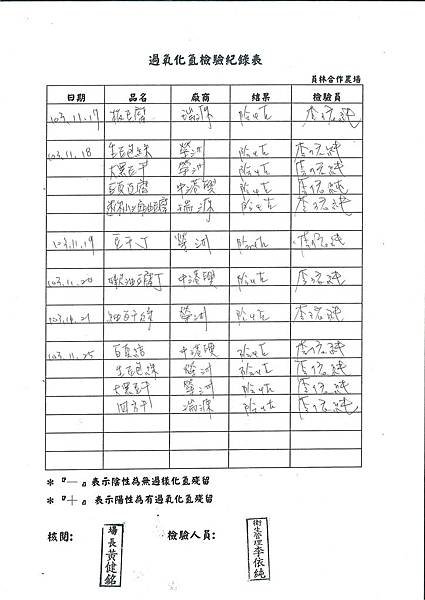 過氧化氫檢驗紀錄表
員林合作農場
日期 品名 廠商 結果 檢驗員
103.11.17 板豆腐 瑞源 陰性 李依純
103.11.18 生豆包絲 榮洲 陰性 李依純
大黑豆干 榮洲 陰性 李依純
中港興 陰性 李依純
瑞源 陰性 李依純
103.11.19 豆干丁 榮洲 陰性 李依純
103.11.20 中港興 陰性 李依純
榮洲 陰性 李依純
103.11.25 中港興 陰性 李依純
生豆包絲 榮洲 陰性 李依純
大黑豆干 榮洲 陰性 李依純
四方干 瑞源 陰性 李依純
* 『－』表示陰性為無過樣化氫殘留
* 『＋』表示陽性為有過氧化氫殘留
核閱： 場長黃健銘 檢驗人員： 衛生管理李依純